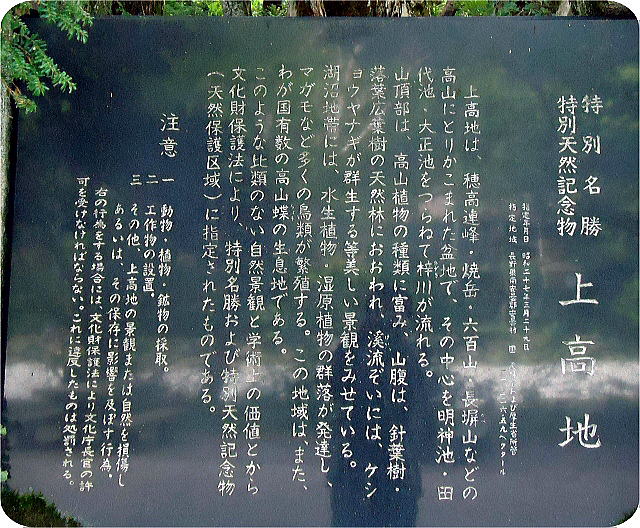 特別名勝
特別天然記念物
上高地
指定年月日 昭和二十七年三月二十九日
指定地域 長野県南安曇郡安曇村
上高地は、穂高連峰・焼岳・六百山・長塀山などの
高山にとりかこまれた盆地で、その中心を明神池・田
代池・大正池をつらねて梓川が流れる。
山頂部は、高山植物の種類に富み、山腹は、針葉樹・
落葉広葉樹の天然林におおわれ、溪流ぞいには、ケシ
ョウヤナギが群生する等美しい景観をみせている。
湖沼地帯には、水生植物・湿原植物の群落が発達し、
マガモなど多くの鳥類が繁殖する。この地域は、また、
わが国有数の高山蝶の生息地である。
このような比類のない自然景観と学術上の価値とから
文化財保護法により、特別名勝および特別天然記念物
(天然保護区域)に指定されたものである。
注意
一 動物・植物・鉱物の採取。
二 工作物の設置。
三 その他、上高地の景観または自然を損傷し
あるいは、その保存に影響を及ぼす行為・
右の行為をする場合には、文化財保護法により文化庁長官の許
可を受けなければならない。これに違反したものは処罰される。